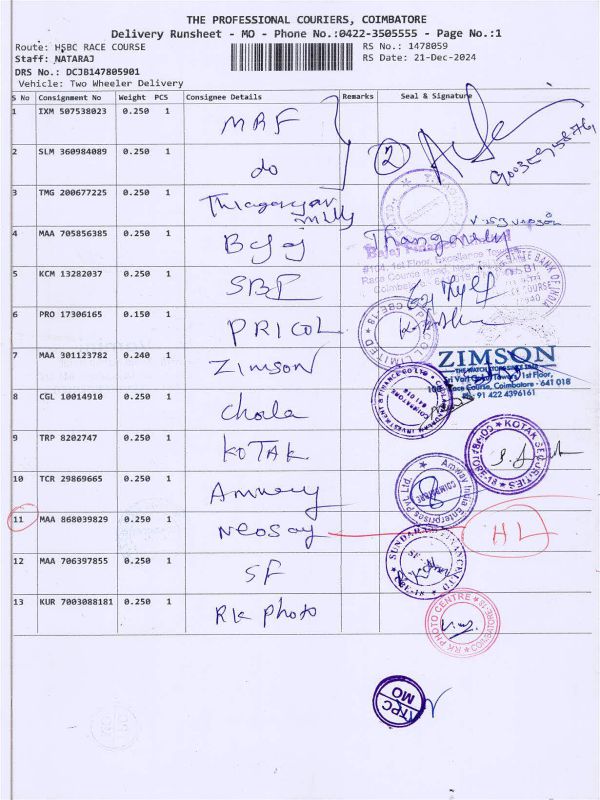 THE PROFESSIONAL COURIERS, COIMBATORE
Delivery Runsheet - MO - Phone No.:0422-3505555 - Page No.:1
Route: HSBC RACE COURSE
RS No.: 1478059
Staff: NATARAJ
RS Date: 21-Dec-2024
DRS No.: DCJB147805901
Vehicle: Two Wheeler Delivery
S No Consignment No Weight PCS Consignee Details Remarks Seal & Signature
1 IXM 507538023 0.250 1 MRF
2 SLM 360984089 0.250 1 do 2
3 TMG 200677225 0.250 1 Thiagarajar Mills
4 MAA 705856385 0.250 1 Bajaj
#104, 1st Floor, Excellance
Race Course Road
5 KCM 13282037 0.250 1 SBI
STATE BANK OF INDIA
6 PRO 17306165 0.150 1 PRICOL
7 MAA 301123782 0.240 1 Zimson
ZIMSON
THE WATCH STORE SINCE 1948
1st Floor,
Race Course, Coimbatore - 641 018
Ph: 91 422 4396161
8 CGL 10014910 0.250 1 Chola
9 TRP 8202747 0.250 1 KOTAK
KOTAK SECURITIES
10 TCR 29869665 0.250 1 Amway
Amway India Enterprises Pvt. Ltd.
COIMBATORE
11 MAA 868039829 0.250 1 HL
12 MAA 706397855 0.250 1 SF
SUNDARAM FINANCE LTD
13 KUR 7003088181 0.250 1 RK Photo
RK PHOTO CENTRE
TPC
MO